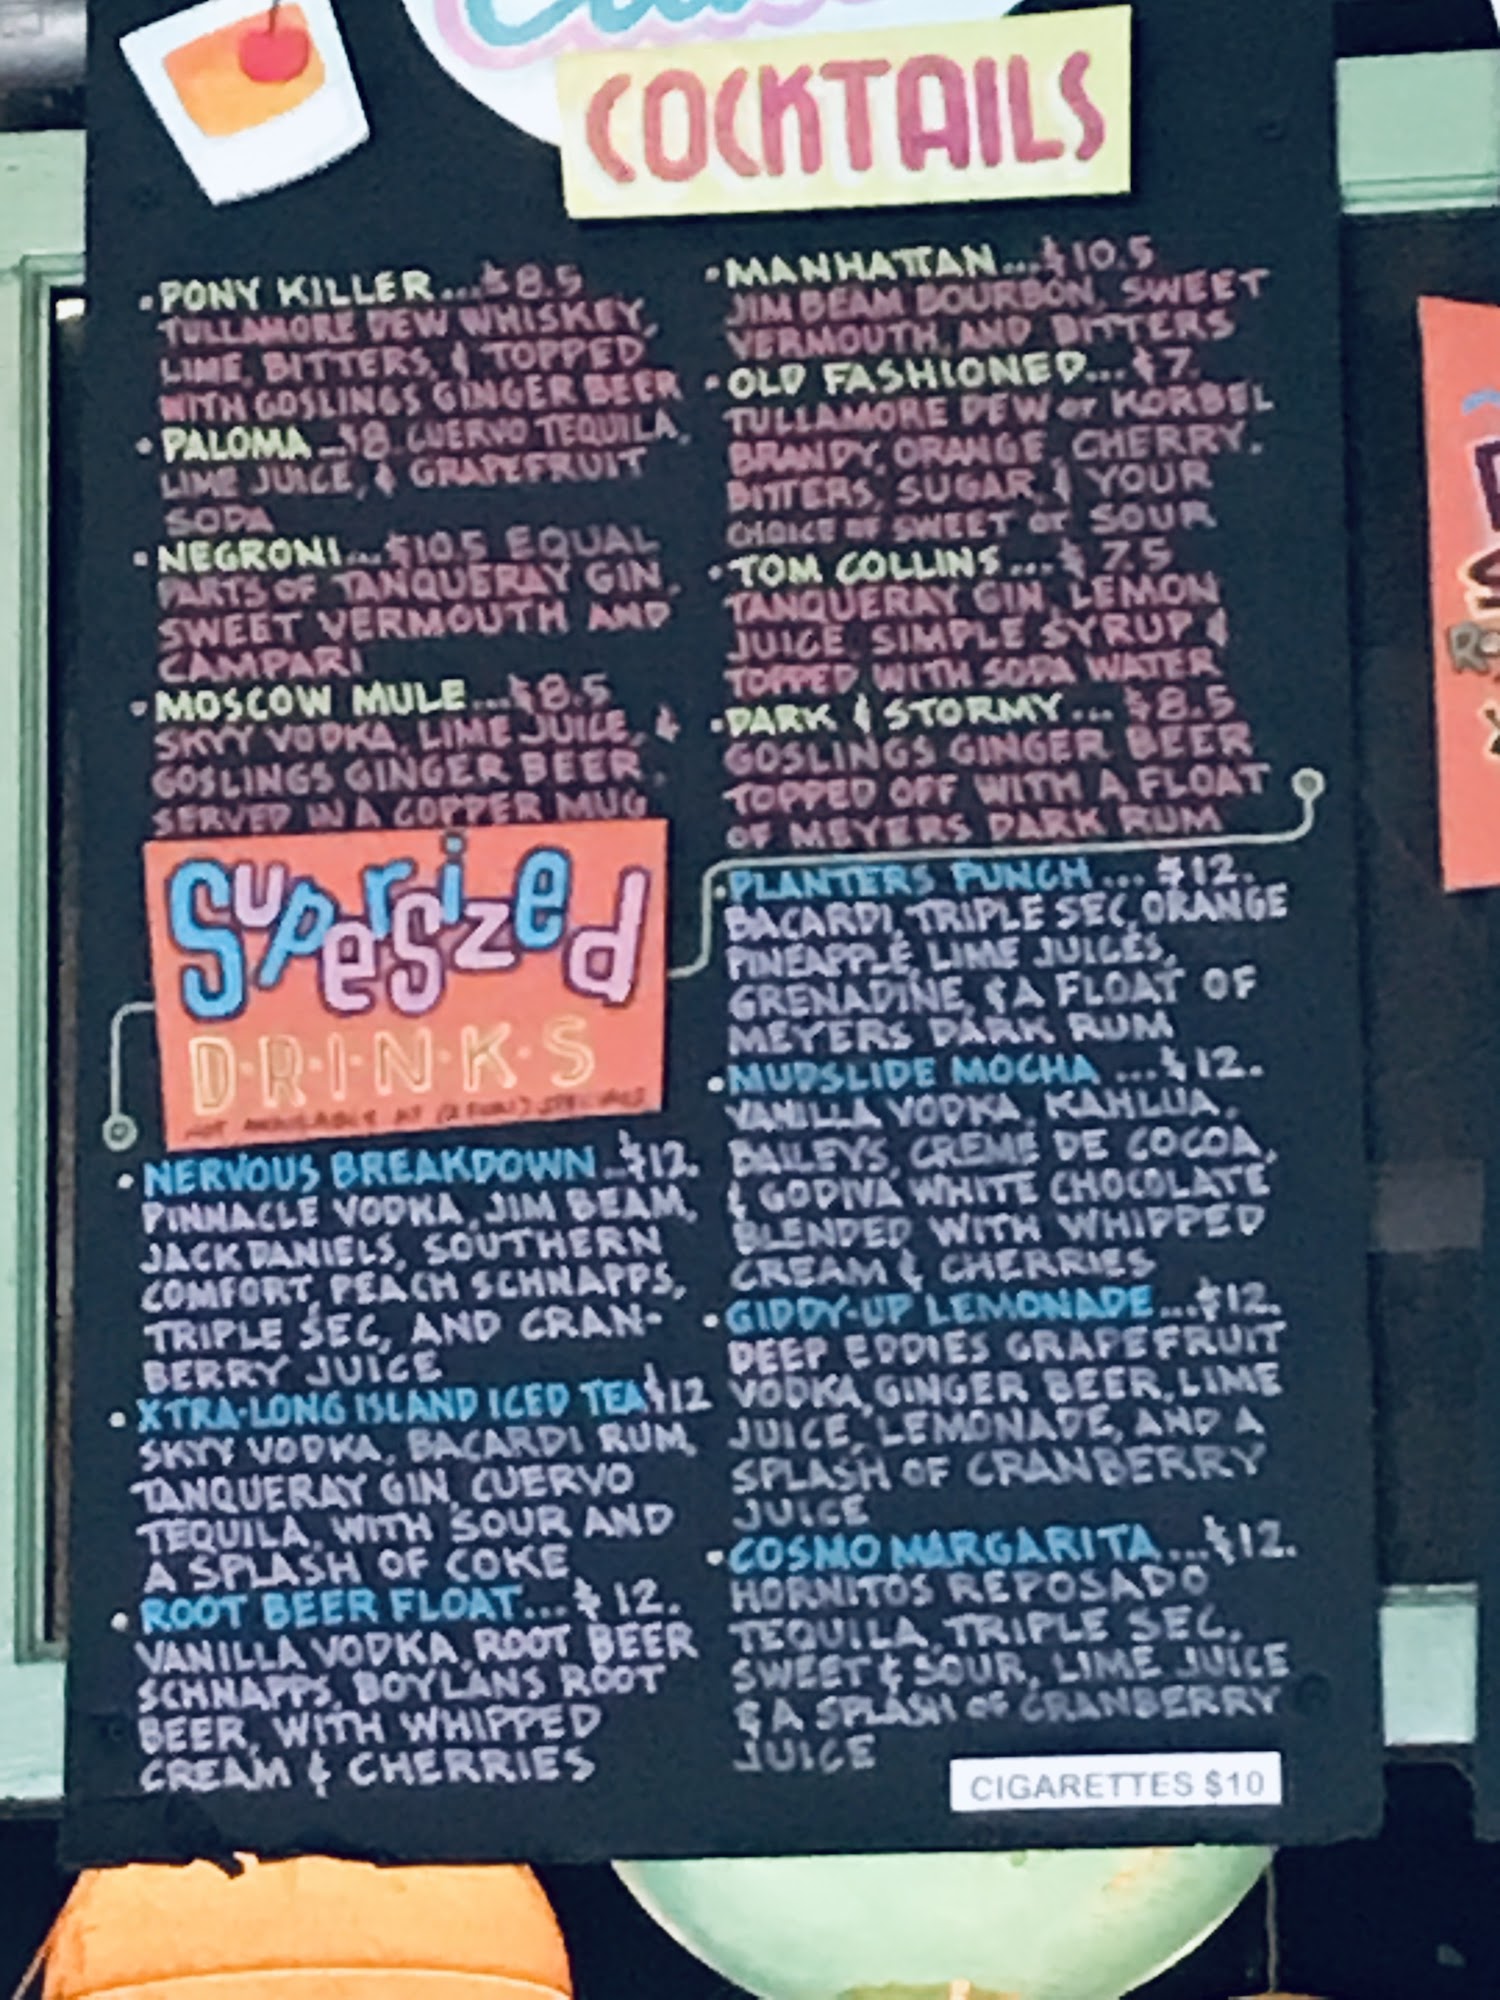 COCKTAILS
• PONY KILLER...$8.5
TULLAMORE DEW WHISKEY,
LIME, BITTERS, & TOPPED
WITH GOSLINGS GINGER BEER
• PALOMA...$8. CUERVO TEQUILA,
LIME JUICE, & GRAPEFRUIT
SODA
• NEGRONI...$10.5 EQUAL
PARTS OF TANQUERAY GIN,
SWEET VERMOUTH AND
CAMPARI
• MOSCOW MULE...$8.5
SKYY VODKA, LIME JUICE, &
GOSLINGS GINGER BEER.
SERVED IN A COPPER MUG
• MANHATTAN...$10.5
JIM BEAM BOURBON, SWEET
VERMOUTH, AND BITTERS
• OLD FASHIONED...$7.
TULLAMORE DEW or KORBEL
BRANDY, ORANGE, CHERRY,
BITTERS, SUGAR, & YOUR
CHOICE OF SWEET or SOUR
• TOM COLLINS...$7.5
TANQUERAY GIN, LEMON
JUICE, SIMPLE SYRUP &
TOPPED WITH SODA WATER
• DARK & STORMY...$8.5
GOSLINGS GINGER BEER
TOPPED OFF WITH A FLOAT
OF MEYERS DARK RUM
Supersized
D·R·I·N·K·S
NOT AVAILABLE AT SPECIALS
• NERVOUS BREAKDOWN...$12.
PINNACLE VODKA, JIM BEAM,
JACK DANIELS, SOUTHERN
COMFORT, PEACH SCHNAPPS,
TRIPLE SEC, AND CRAN-
BERRY JUICE
• XTRA-LONG ISLAND ICED TEA $12
SKYY VODKA, BACARDI RUM,
TANQUERAY GIN, CUERVO
TEQUILA, WITH SOUR AND
A SPLASH OF COKE
• ROOT BEER FLOAT...$12.
VANILLA VODKA, ROOT BEER
SCHNAPPS, BOYLANS ROOT
BEER, WITH WHIPPED
CREAM & CHERRIES
• PLANTERS PUNCH...$12.
BACARDI, TRIPLE SEC, ORANGE
PINEAPPLE, LIME JUICES,
GRENADINE, & A FLOAT OF
MEYERS DARK RUM
• MUDSLIDE MOCHA...$12.
VANILLA VODKA, KAHLUA,
BAILEYS, CREME DE COCOA,
& GODIVA WHITE CHOCOLATE
BLENDED WITH WHIPPED
CREAM & CHERRIES
• GIDDY-UP LEMONADE...$12.
DEEP EDDIES GRAPEFRUIT
VODKA, GINGER BEER, LIME
JUICE, LEMONADE, AND A
SPLASH OF CRANBERRY
JUICE
• COSMO MARGARITA...$12.
HORNITOS REPOSADO
TEQUILA, TRIPLE SEC,
SWEET & SOUR, LIME JUICE
& A SPLASH OF CRANBERRY
JUICE
CIGARETTES $10